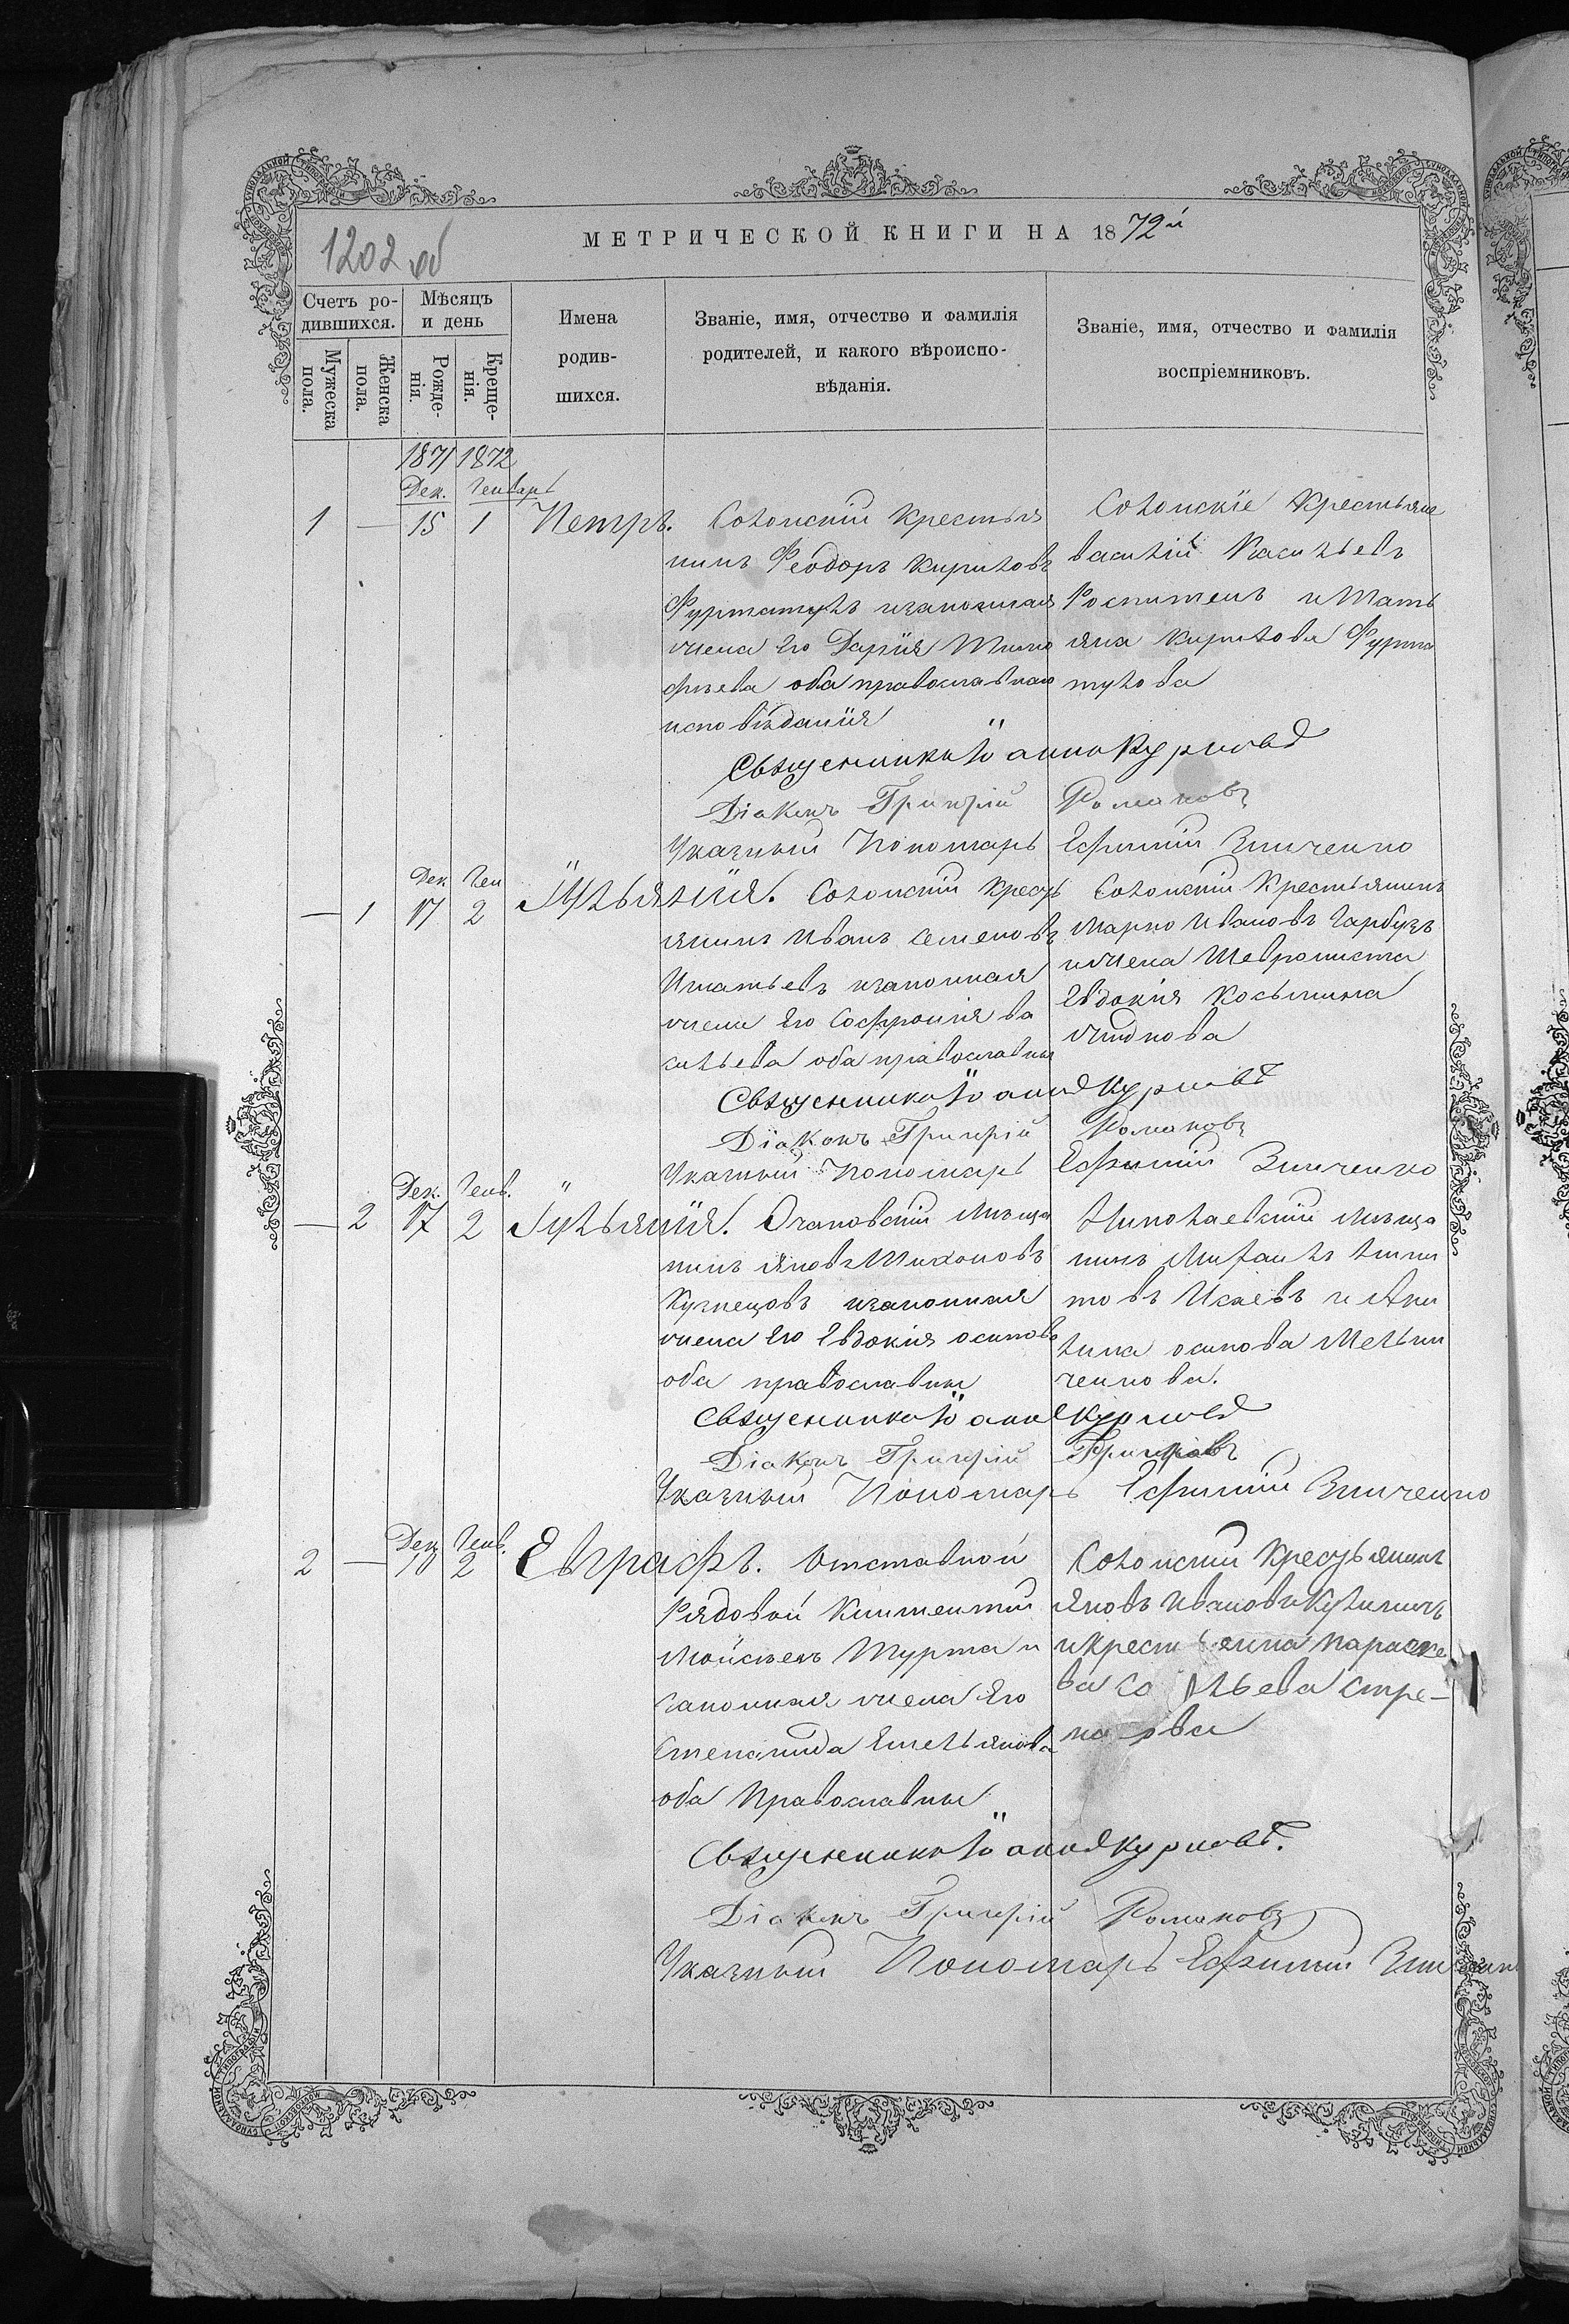 1202 об
МЕТРИЧЕСКОЙ КНИГИ НА 1872й
Счетъ ро-
дившихся.
Мужеска
пола.
Женска
пола.
Мѣсяцъ
и день
Рожде-
нія.
Креще-
нія.
Имена
родив-
шихся.
Званіе, имя, отчество и фамилія
родителей, и какого вѣроиспо-
вѣданія.
Званіе, имя, отчество и фамилія
воспріемниковъ.
1871 1872
Дек. Генварь
1 — 15 1 Петръ.
Солонскій крестья
нинъ Феодоръ Кириловъ
Фурматулъ изаконная
жена его Дарія Тимо
фѣева оба православнаго
исповѣданія
Солонскіе крестьяне
Василій Васильевъ
и Тать
яна Кирилова Фурма
тулова
Священникъ Іоаннъ Курловъ
Діаконъ Григорій Романовъ
Указный Пономарь Ефимій Зинченко
Дек Ген
— 1 17 2 Іульянія.
Солонскій кресть
янинъ Иванъ Семеновъ
Игнатьевъ изаконная
жена его Софронія Ва
сильева оба православны
Солонскій крестьянинъ
Марко Ивановъ Гарбузъ
ижена
Евдокія Косьмина
Священникъ Іоаннъ Курловъ
Діаконъ Григорій Романовъ
Указный Пономарь Ефимій Зинченко
Дек. Генв.
— 2 17 2 Іульянія.
Очаковскій мѣща
нинъ Яковъ Тихоновъ
Кузнецовъ изаконная
жена его Евдокія осипова
оба православны
Николаевскій мѣща
нинъ Михаилъ Ники
товъ Исаевъ и Аки
лина осипова Мельни
ченкова.
Священникъ Іоаннъ Курловъ
Діаконъ Григорій
Указный Пономарь Ефимій Зинченко
Дек Генв.
2 — 18 2 Евграфъ.
Отставной
Рядовой Климентій
Мойсеевъ Турта и
законная жена его
Степанида Емельянова
оба Православны
Солонскій крестьянинъ
Яковъ Ивановъ
икрестьянка Параске
ва
Священникъ Іоаннъ Курловъ.
Діаконъ Григорій Романовъ
Указный Пономарь Ефимій Зинченко